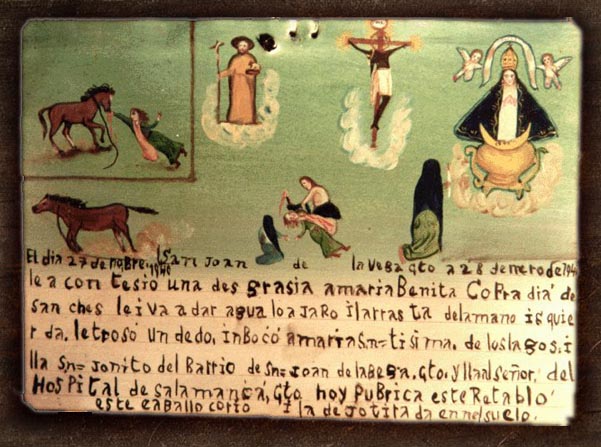 El dia 27 de nobre. 1940 San Joan de la Vega Gto a 28 de nero de 194
le a con tesio una des grasia a maria Benita Co Pra dia de
san ches le iva a dar agua lo a ja Ro i larras ta de la mano is quier
da, le troso un dedo, in Bo có a maria Sn=tisima. de los lagos, i
lla Sn= Jonito del Barrio de Sn= Joan de la Bega, Gto, y llaal señor, del
HosPital de Salamanca, Gto, hoy pubrica este Retablo
este caballo corio i la de jo tira da en nel suelo.